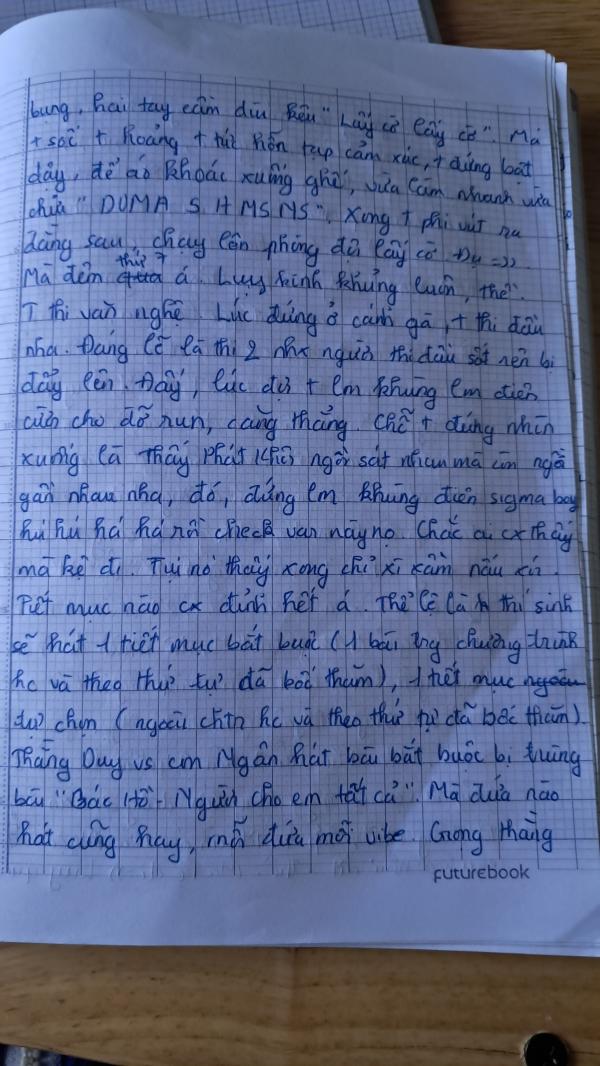 bung, hai tay cầm dùi kêu "Lấy cờ lấy cờ". Má
t sốc t hoảng t tức hỗn tạp cảm xúc, t đứng bật
dậy, để áo khoác xuống ghế, vừa cầm nhanh vừa
chửi "DUMA S H MS MS". Xong t phi vút ra
đằng sau, chạy lên phòng đội lấy cờ. Đu =))
Mà đêm thứ 7 á. Luỵ kinh khủng luôn, thề.
T thi văn nghệ. Lúc đứng ở cánh gà, t thi đầu
nha. Đáng lẽ là thi 2 nhx người thi đầu sốt nên bị
đẩy lên. Đấy, lúc đó t lm khùng lm điên
cười cho đỡ run, căng thẳng. Chỗ t đứng nhìn
xuống là thấy Phát Khôi ngồi sát nhau mà còn ngồi
gần nhau nha, đó, đứng lm khùng điên sigma boy
hú hú há há rồi check var này nọ. Chắc ai cx thấy
mà kệ đi. Tụi nó thấy xong chỉ xì xầm nấu xói
Tiết mục nào cx đỉnh hết á. Thể lệ là thí sinh
sẽ hát 1 tiết mục bắt buộc (1 bài trg chương trình
hc và theo thứ tự đã bốc thăm), 1 tiết mục ngoài
tự chọn (ngoài chtr hc và theo thứ tự đã bốc thăm).
Thằng Duy vs cm Ngân hát bài bắt buộc bị trùng
bài "Bác Hồ - Người cho em tất cả". Mà đứa nào
hát cũng hay, mỗi đứa mỗi vibe. Giọng thằng
FUTUREBOOK